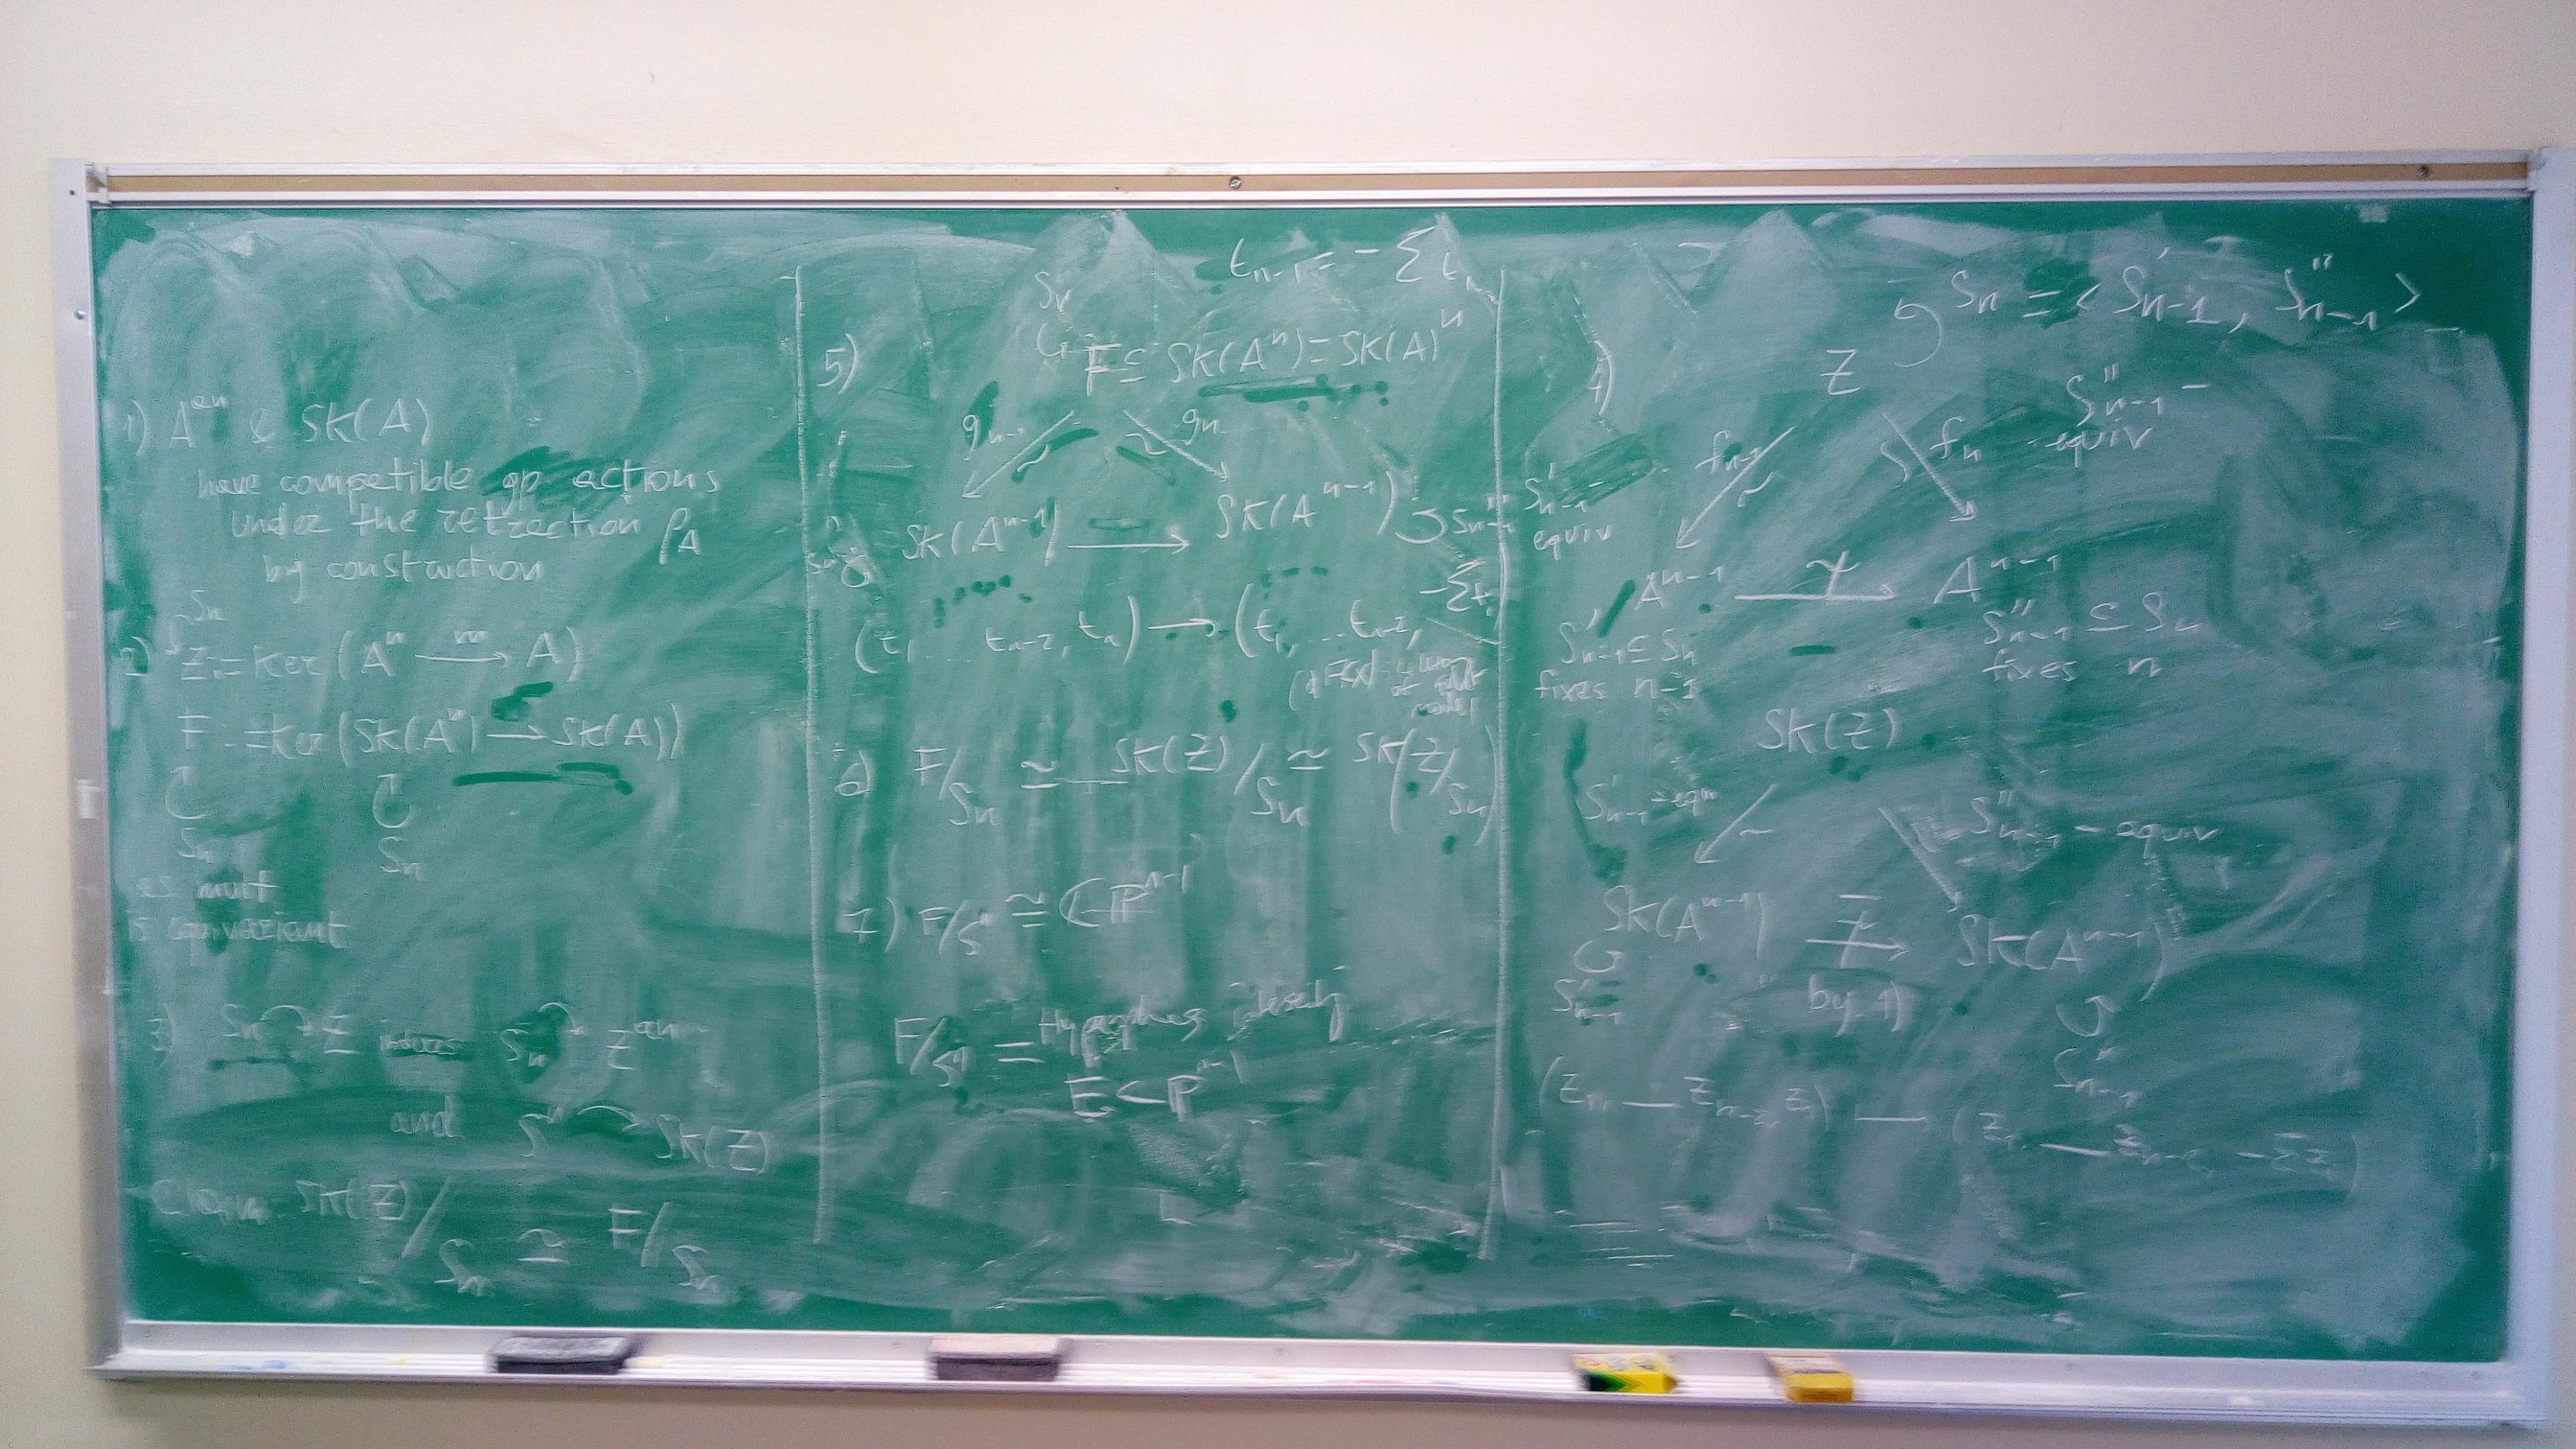 1) A^{an} & Sk(A)
have compatible gp actions
under the retraction ρ_A
by construction
S_n
2) Z := Ker(A^n \xrightarrow{m} A)
F := Ker(Sk(A^n) → Sk(A))
S_n S_n
as mult
is equivariant
3) S_n ↷ Z^{an}
and Sk(Z)
Claim Sk(Z)/S_n ≃ F/S_n
t_{n-1} = - Σ t_n
5) F ⊆ Sk(A^n) = Sk(A)^n
g_{n-1} ~ ~ g_n
Sk(A^{n-1}) → Sk(A^{n-1})
(t_1 ... t_{n-2}, t_n) → (t_1 ... t_{n-2}, -Σt_i)
6) F/S_n ≃ Sk(Z)/S_n ≃ Sk(Z/S_n)
7) F/S_n ≅ CP^{n-1}
F/S_n =
E < P^{n-1}
4) Z ↶ S_n = <S'_{n-1}, S''_{n-1}>
S'_{n-1} - equiv f_{n-1} ~ f_n S''_{n-1} - equiv
A^{n-1} \xrightarrow{γ} A^{n-1}
S'_{n-1} ⊆ S_n S''_{n-1} ⊆ S_n
fixes n-1 fixes n
Sk(Z)
S'_{n-1} - equ ~ S''_{n-1} - equiv
Sk(A^{n-1}) → Sk(A^{n-1})
S'_{n-1} by 1)
S''_{n-1}
(z_1, — z_{n-2}, z_n) → (z_1, — z_{n-2}, -Σz_i)